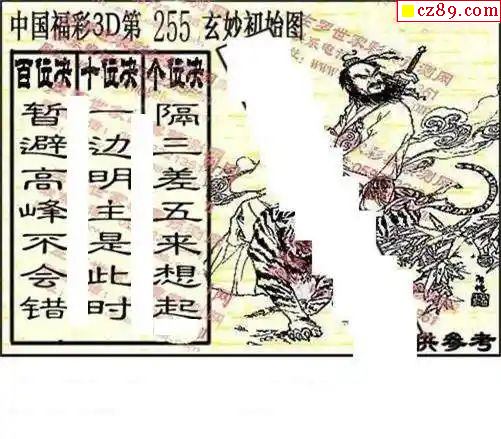 cz89.com
中国福彩3D第 255 玄妙初始图
百位决 十位决 个位决
暂避高峰不会错
一边明主是此时
隔三差五来想起
供参考